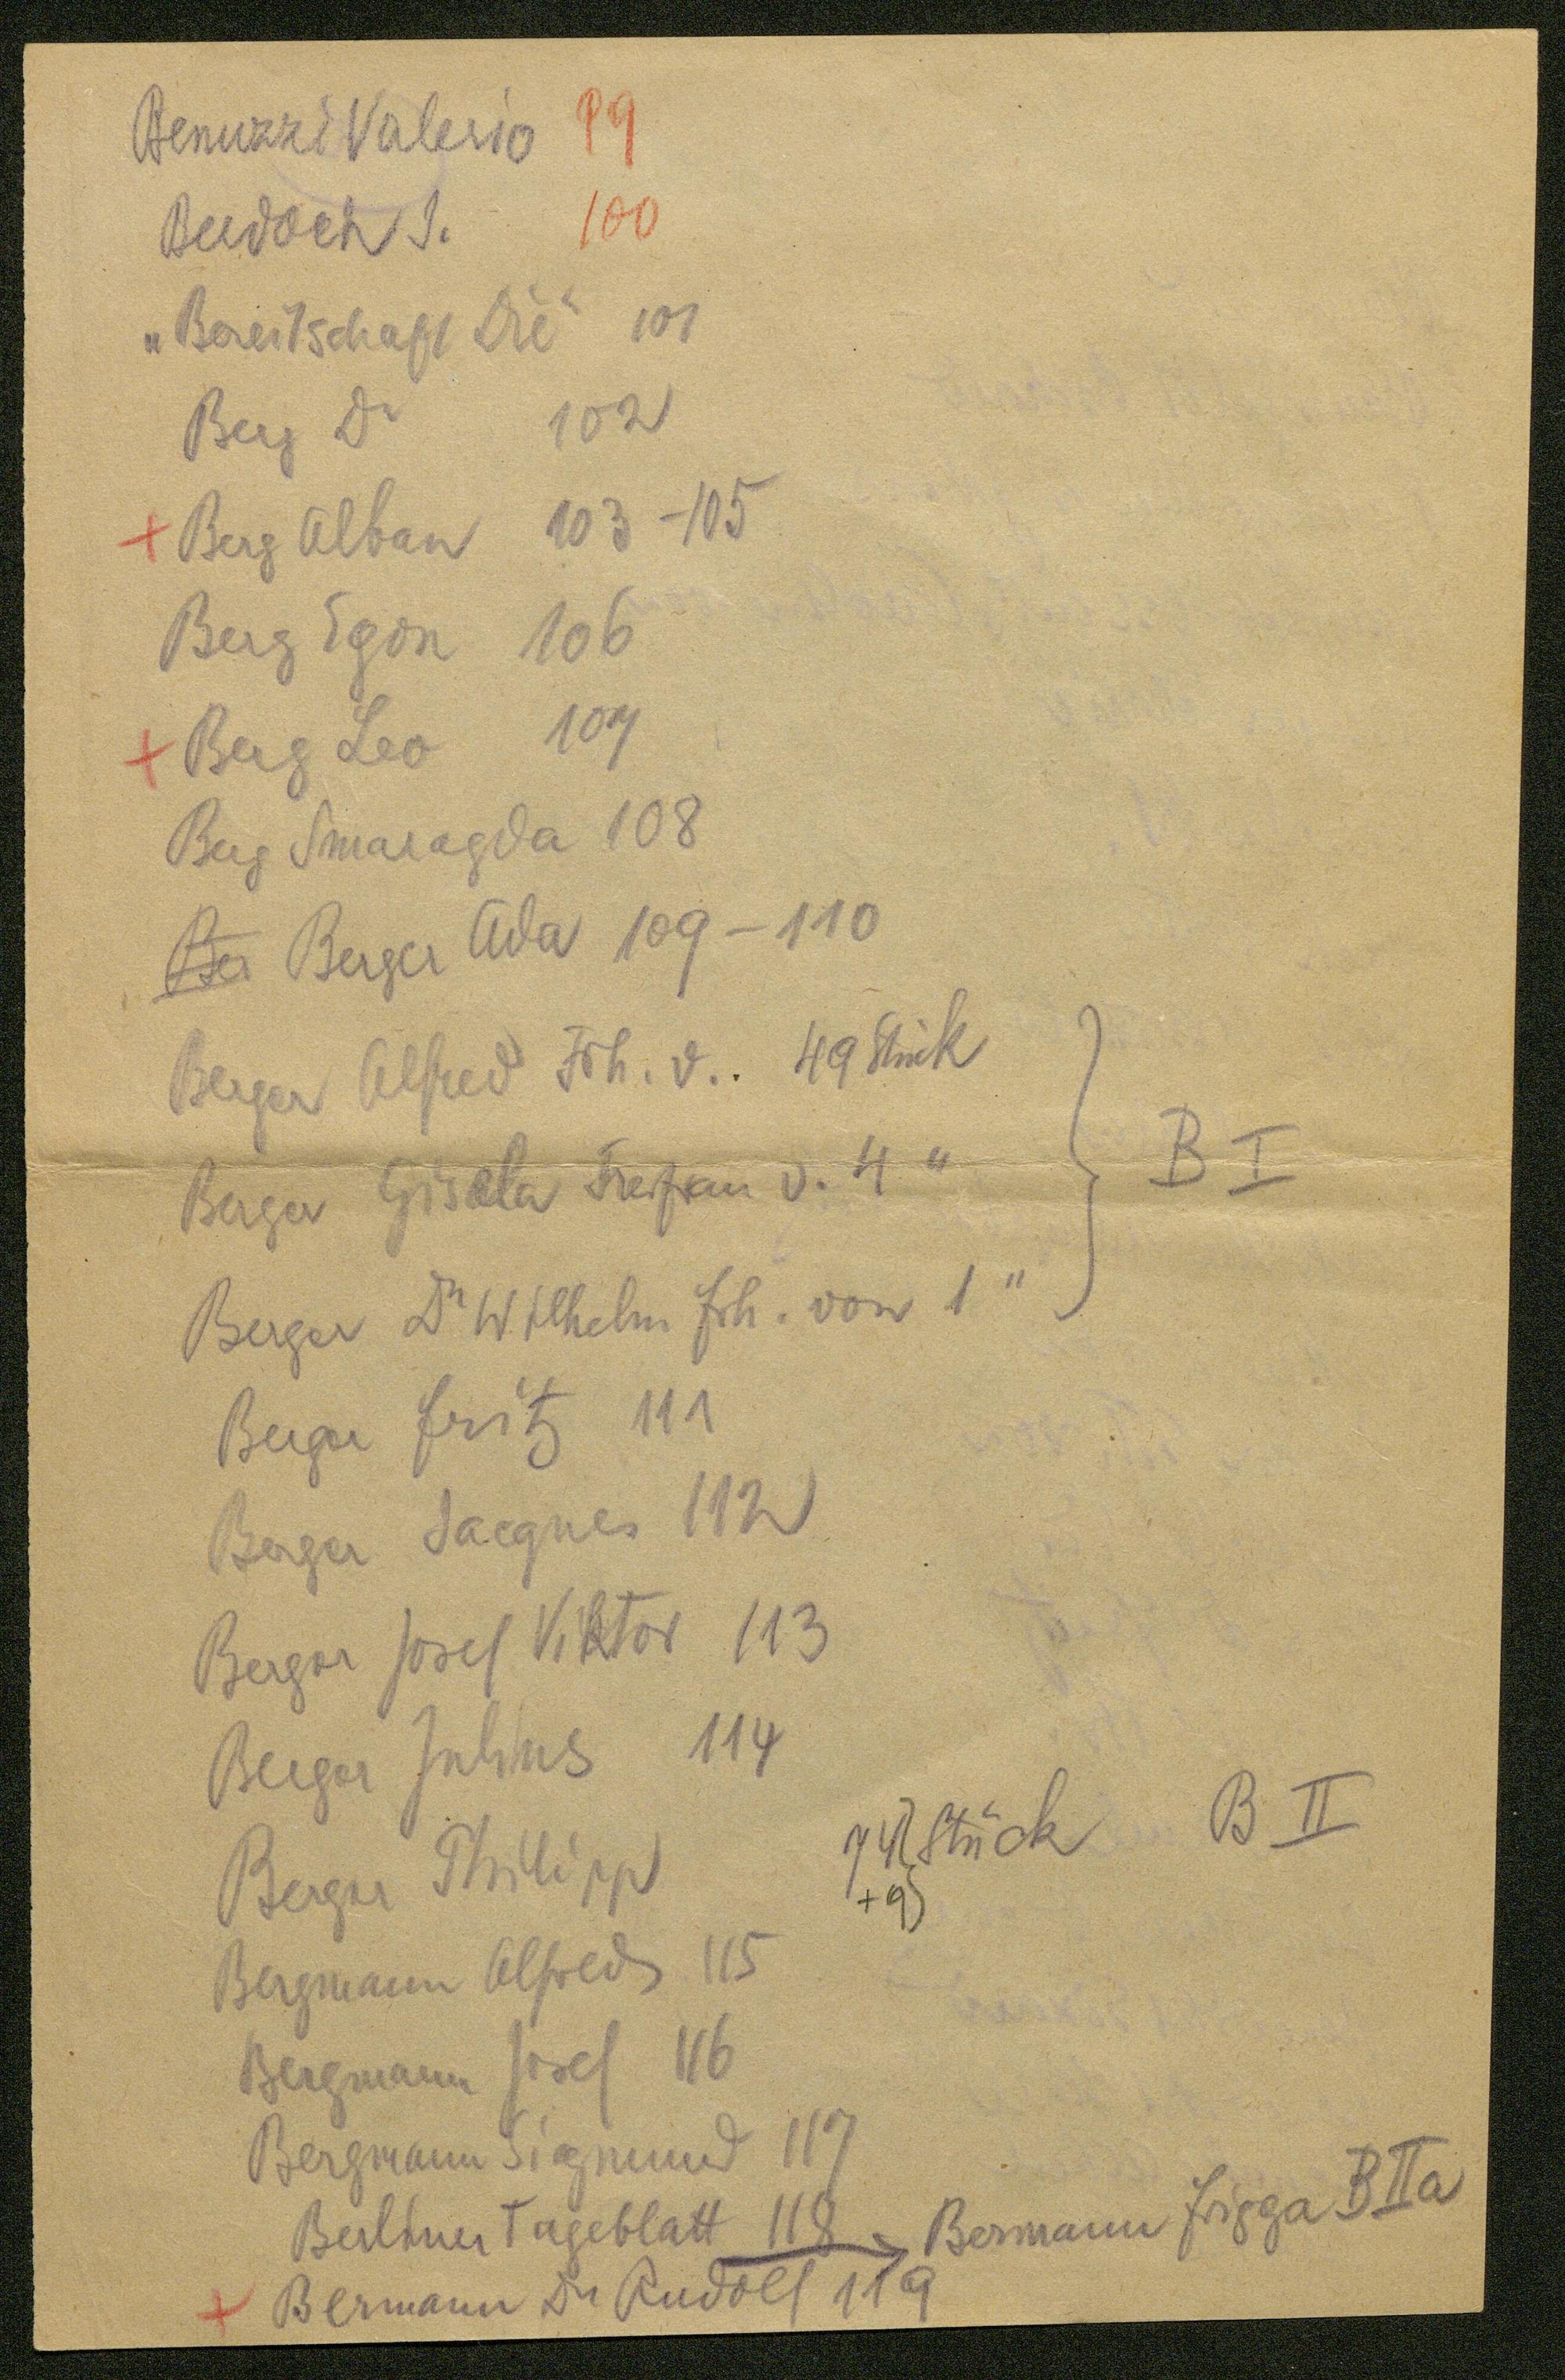 Benuzzi Valerio 99
Beedoch S. 100
"Bereitschaft Die" 101
Berg Dr 102
+ Berg Alban 103-105
Berg Egon 106
+ Berg Leo 107
Berg Smaragda 108
Ber Berger Ada 109-110
Berger Alfred Frh. v.. 49 Stück
Berger Gisela Freifrau v. 4 "
Berger Dr Wilhelm Frh. von 1 "
B I
Berger Fritz 111
Berger Jacques 112
Berger Josef Viktor 113
Berger Julius 114
Berger Philipp 74 Stück B II
+9
Bergmann Alfred 115
Bergmann Josef 116
Bergmann Sigmund 117
Berliner Tageblatt 118 → Bermann Frigga B IIa
+ Bermann Dr Rudolf 119